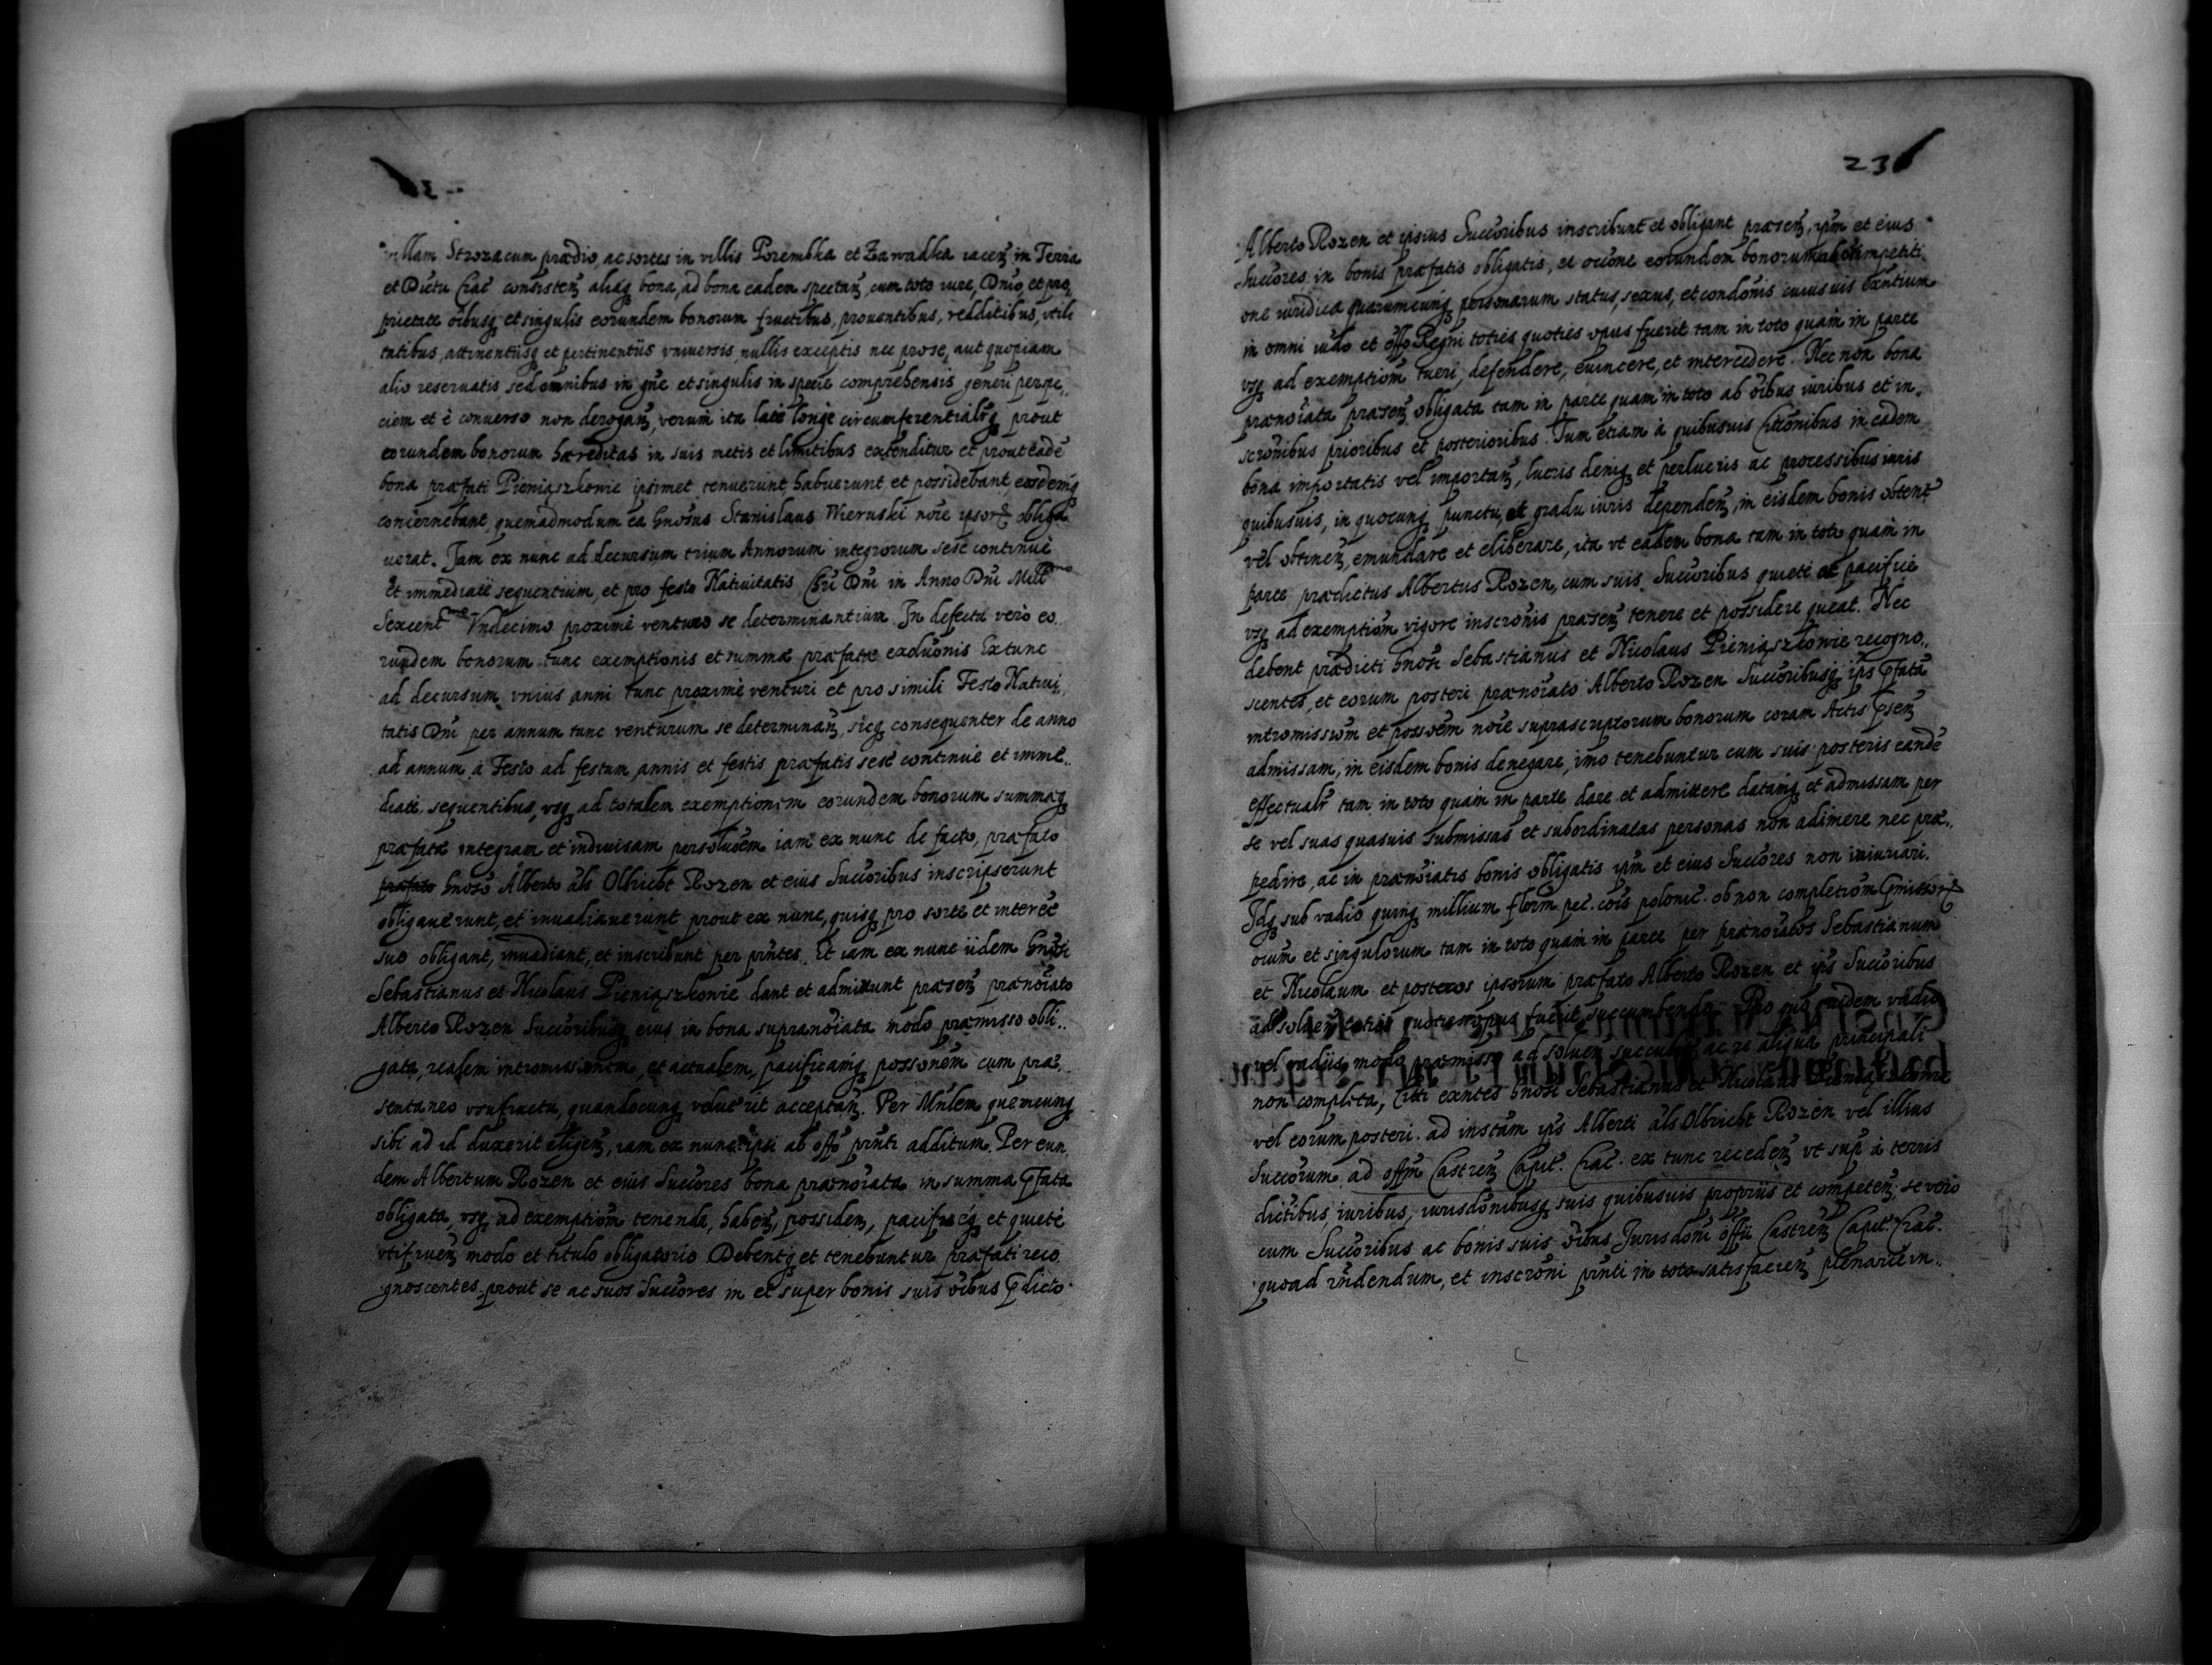 villam Stroza cum prædio, ac sortes in villis Porembka et Zawadka iaceñ in Terra
et Dictu Crac̃ consisteñ aliaq̃ bona, ad bona eadem spectañ, cum toto iure, Dnio, et pro,
prietate oĩbusq̃ et singulis eorundem bonorum fructibus, prouentibus, redditibus, vtili
tatibus, attinentiisq̃ et pertinentiis vniuersis nullis exceptis nec pro se, aut quopiam
alio reseruatis sed omnibus in gñe et singulis in specie comprehensis generi per spe,,
ciem et è conuerso non derogañ, verum ita latè longè circumferentialr̃q̃ prout
eorundem bonorum hæreditas in suis metis et limitibus extenditur et prout eadẽ
bona præfati Pieniąszkowie ipsimet tenuerunt, habuerunt et possidebant, eosdemq̃
concernebant, quemadmodum ea Gnosus Stanislaus Wieruski noĩe ipsorũ obliga
uerat. Jam ex nunc ad decursum trium Annorum integrorum sese continuè
et immediatè sequentium, et pro festo Natiuitatis Chri Dni in Anno Dni Mill̃mo
Sexcent̃mo Vndecimo proximè venturo se determinantium. In defectu verò eo,,
rundem bonorum tunc exemptionis et summæ præfatæ exolũonis Ex tunc
ad decursum vnius anni tunc proximè venturi et pro simili Festo Natiui,,
tatis Dni per annum tunc venturum se determinañ, sicq̃ consequenter de anno
ad annum à Festo ad festum, annis et festis præfatis sese continuè et immè,,
diatè sequentibus, vsq̃ ad totalem exemptionem eorundem bonorum summæq̃
præfatæ integram et indiuisam persolũoem iam ex nunc de facto, præfato
præfato Gnoso Alberto als Olbricht Rozen et eius Succoribus inscripserunt
obligauerunt, et inuadiauerunt prout ex nunc, quisq̃ pro sorte et interẽe
suo obligant, inuadiant, et inscribunt per pñtes. Et iam ex nunc iidem Gnosi
Sebastianus et Nicolaus Pieniąszkowie dant et admittunt præseñ prænoĩato
Alberto Rozen Succoribusq̃ eius in bona supranoĩata modo præmisso obli,,
gata, realem intromissionem, et actualem, pacificamq̃ possonẽm cum præ,,
sentaneo vsufructu, quandocunq̃ voluerit acceptañ. Per Mñlem quemcunq̃
sibi ad id duxerit eligeñ, iam ex nunc ipsi ab offo pñti additum. Per eun
dem Albertum Rozen et eius Succores bona prænoĩata in summa p̃fata
obligata, vsq̃ ad exemptiõm tenenda, habeñ, possideñ, pacificeq̃ et quietè
vtifrueñ modo et titulo obligatorio Debentq̃ et tenebuntur præfati reco
gnoscentes, prout se ac suos Succores in et super bonis suis oĩbus p̃dicto
23
Alberto Rozen et ipsius Succoribus inscribunt et obligant præseñ, ipm et eius
Succores in bonis præfatis obligatis, et occ̃one eorundem bonorum ab oĩ impetiti
one iuridica quarumcunq̃ personarum status, sexus, et condonis cuiusuis exñtium
in omni iudo et offo Regni toties quoties opus fuerit tam in toto quam in parte
vsq̃ ad exemptiõm tueri, defendere, euincere, et intercedere. Nec non bona
prænoĩata præseñ obligata tam in parte quam in toto ab oĩbus iuribus et in,,
scronibus prioribus et posterioribus. Tum etiam à quibusuis Cittõnibus in eadem
bona importatis vel importañ, lucris deniq̃ et perlucris ac processibus iuris
quibusuis, in quocunq̃ punctu, et gradu iuris dependeñ, in eisdem bonis obtent̃
vel obtineñ, emundare et eliberare, ita vt eadem bona tam in toto quam in
parte prædictus Albertus Rozen, cum suis Succoribus quietè et pacificè
vsq̃ ad exemptiõm vigore inscronis præseñ tenere et possidere queat. Nec
debent prædicti Gnosi Sebastianus et Nicolaus Pieniąszkowie recogno,,
scentes, et eorum posteri prænoĩato Alberto Rozen Succoribusq̃ ip̃s p̃fatã
intromissiõm et possoẽm noĩe suprascriptorum bonorum coram Actis p̃señ
admissam, in eisdem bonis denegare, imo tenebuntur cum suis posteris eandẽ
effectualr̃ tam in toto quam in parte dare et admittere datamq̃ et admissam per
se vel suas quasuis submissas et subordinatas personas non adimere nec præ,,
pedire, ac in prænoĩatis bonis obligatis ipm et eius Succores non iniuriari.
Idq̃ sub vadio quinq̃ millium florẽn. pec̃. coĩs polonic̃. ob non completiõm p̃missorũ
oium et singulorum tam in toto quam in parte per prænoĩatos Sebastianum
et Nicolaum et posteros ipsorum præfato Alberto Rozen et ip̃s Succoribus
ad solueñ toties quoties opus fuerit succumbendo. Pro quo quidem vadio
vel vadiis modo præmisso ad solueñ succubit̃ ac re aliqua principali
non completa, Citti exñtes Gnosi Sebastianus et Nicolaus Pieniąszkowie
vel eorum posteri ad instam ip̃s Alberti als Olbricht Rozen vel illius
Succorum ad offm Castreñ Capit̃. Crac̃. ex tunc recedeñ vt sup̃ à terris
dictibus, iuribus, iurisdonibusq̃ suis quibusuis propriis et competeñ, se verò
cum Succoribus ac bonis suis oĩbus Jurisdoni offii Castreñ Capit̃. Crac̃.
quoad rñdendum, et inscroni pñti in toto satisfacieñ plenariè in,,